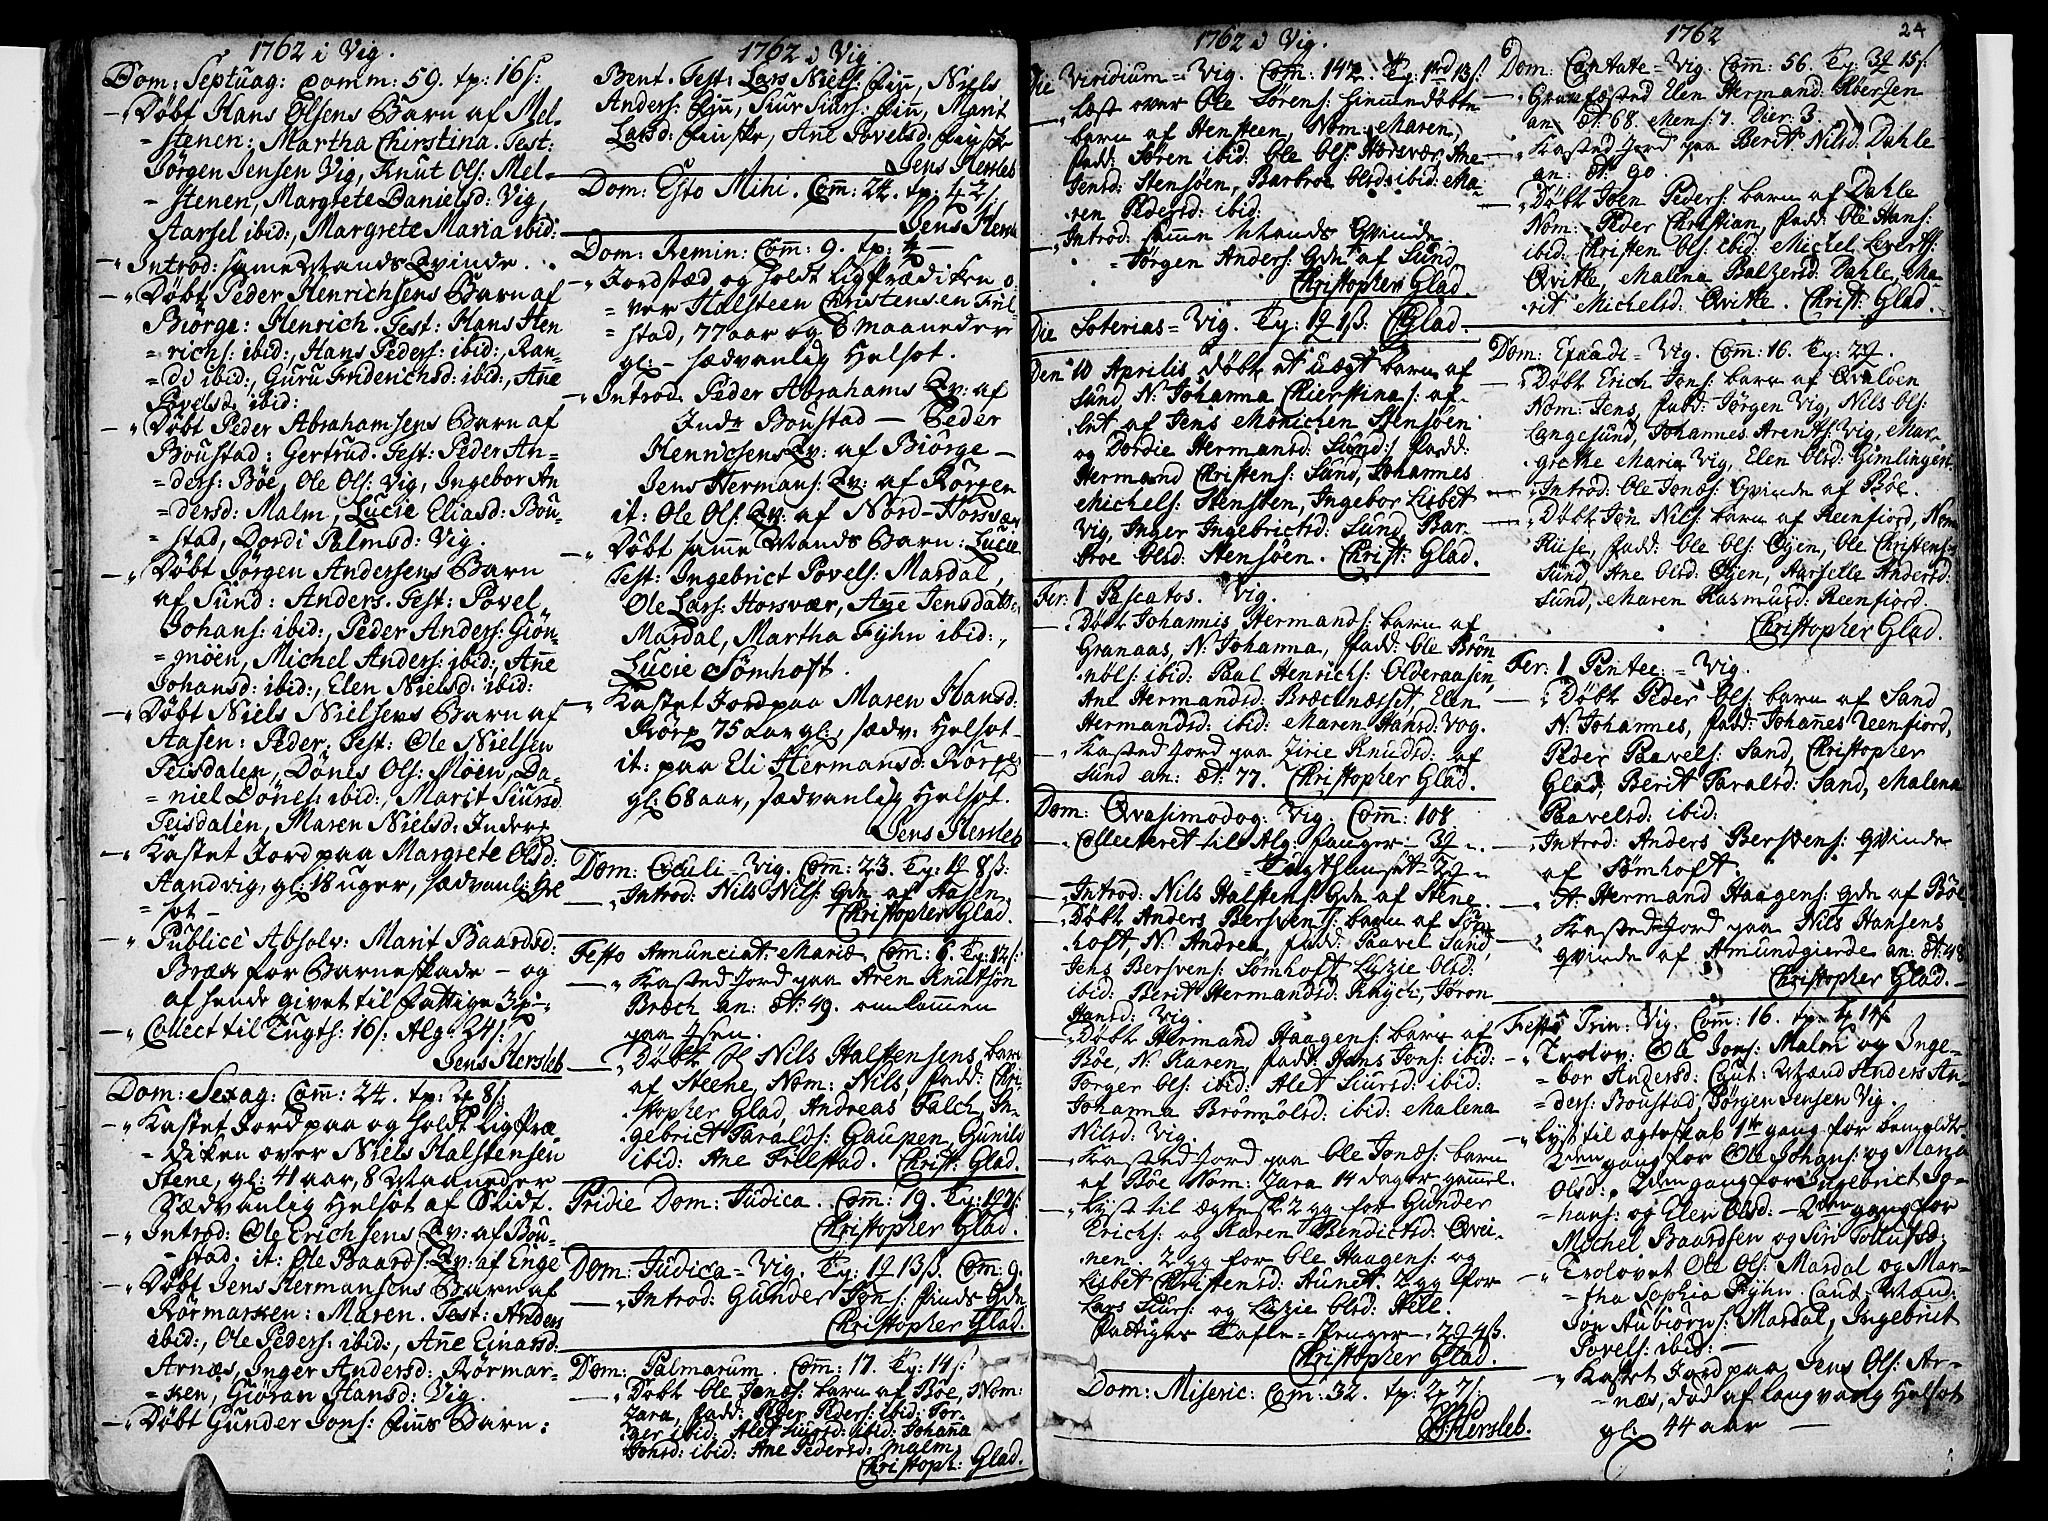 1762 i Vig.
Dom: Septuag: Comm: 59. tp: 16 s:
- „ Døbt Hans Olsens Barn af Mel-
= stenen: Martha Chirstina. Test:
Jørgen Jensen Vig, Knut Ols: Mel-
- stenen, Margrete Danielsd: Vig,
Aarsel ibid:, Margrete Maria ibid:
- „ Introd: samme Mands Qvinde.
- „ Døbt Peder Henrichsens Barn af
Biörge: Henrich. Test: Hans Hen
= richs: ibid:, Hans Peders: ibid:, Ran-
= di ibid:, Guru Friderichsd: ibid:, Ane
Povelsd: ibid:
- „ Døbt Peder Abrahamsens Barn af
Boustad: Gertrud. Test: Peder An-
= ders: Böe, Ole Ols: Vig, Ingebor An
= dersd: Malm, Lucie Eliasd: Bou-
= stad, Dordi Palmsd: Vig.
- „ Døbt Jørgen Andersens Barn
af Sund: Anders. Test: Povel
Johans: ibid:, Peder Anders: Giön-
= möen, Michel Anders: ibid:, Ane
Johansd: ibid:, Elen Nielsd: ibid:
- „ Døbt Niels Nielsens Barn af
Aasen: Peder. Test: Ole Nielsen
Teisdalen, Dönes Ols: Möen, Da-
= niel Dönes: ibid:, Marit Siursd
Teisdalen, Maren Nielsd: Inder
- „ Kastet Jord paa Margrete Olsd:
Aandvig, gl: 18 uger, sædvanl: Hel
= sot -
- „ Publicè Absolv: Marit Baardsd:
Bræk for Barneskade - og
af hende givet til fattige 3 p
- „ Collect til Tugts: 16 s: Alg: 24 s:
Jens Hersleb
Dom: Sexag: Comm: 24. tp: 2 8 s:
- „ Kastet Jord paa og holdt Ligpræ-
- diken over Niels Halstensen
Stene, gl: 41 aar, 8 Maaneder
Sædvanlig Helsot af Slidt.
- „ Introd: Ole Erichsens Qv: af Bou-
- stad. it: Ole Baards: Qv: af Enge
- „ Døbt Jens Hermansens Barn af
Rörmarken: Maren. Test: Anders
ibid:, Ole Peders: ibid:, Ane Einarsd:
Arnæs, Inger Andersd: Rörmar-
= ken, Giöran Hansd: Vig.
- „ Døbt Gunder Jons: Finns Barn:
1762 i Vig.
Bent. Test: Lars Niels: Fin, Niels
Anders: Fin, Siur Siurs: Fin, Marit
Larsd: Finske, Ane Povelsd: Finske
Jens Hersleb
Dom: Esto Mihi. Comm: 24. tp: 4 2 s
Jens Hersle
Dom: Remin: Comm: 9. tp:
- „ Jordstæd og holdt Ligprædiken o-
= ver Halsteen Christensen Fiil-
= stad, 77 aar og 6 maaneder
gl: - sædvanlig Helsot.
- „ Introd: Peder Abrahams Qv: af
Indr Boustad - Peder
Henrichsens Qv: af Biörge -
Jens Hermans: Qv: af Rörgen
it: Ole Ols: Qv: af Nord-Horsvær
- „ Døbt samme Mands Barn: Lucie
Test: Ingebrict Povels: Mardal,
Ole Lars: Horsvær, Ane Jensdatt:
Mardal, Martha Fyhn ibid:,
Lucie Sömhoft.
„ Kastet Jord paa Maren Hansd:
Rörg 75 aar gl:, sædv: Helsot
it: paa Eli Hermansd: Rörgen
gl: 68 aar, sædvanlig Helsot.
Jens Hersleb
Dom: Oculi - Vig. Comm: 23. Ty: 1 8 ß:
- „ Introd: Nils Nils: Qdn af Aasen
Christopher Glad.
Festo Annunciat: Mariæ Comm: 6. Ty: 12 s:
- „ Kasted Jord paa Aren Knutson
Broch an: æt: 49. omkommen
paa Isen.
- „ Døbt Nils Halstensens barn
af Steene, Nom: Nils, fadd: Chri-
stopher Glad, Andreas Falch, In-
gebrict Taralds: Gaupen, Gunild
ibid: Ane Fillstad. Christ: Glad.
Pridie Dom: Judica. Comm: 19. Ty: 12 s:
Christopher Glad.
Dom: Judica = Vig. Ty: 1 13 ß. Com: 9:
- „ Introd: Gunder Jons: Finds Qdn
Christopher Glad.
Dom: Palmarum. Comm: 17. Ty: 14 s:
- „ Døbt Ole Jonæs: barn af Böe, Nom:
Zara, fadd: Peder Peders: ibid: Tor-
ger ibid: Alet Siursd: ibid: Johana
Johsd: ibid: Ane Pedersd: Malm,
Christoph: Glad.
1762 i Vig.
Die Viridium = Vig. Com: 142 Ty: 1 rd 13 s:
- „ Læst over Ole Sörens: hiemmedöbte
barn af Hensteen, Nom: Maren,
fadd: Sören ibid: Ole Ols: Horsvær, Ane
Jensd: Stensöen, Barbroe Olsd: ibid: Ma-
ren Pedersd: ibid:
- „ Introd: samme Mands Qvinde
= Jørgen Anders: Qdn af Sund
Christopher Glad.
Die Soterias = Vig. Ty: 1 1 ß: CGlad.
Den 10 Aprilis döbt et uægt barn af
Sund N: Johanna Chierstina: af-
let af Jens Mönichen Stensöen
og Dordie Hermansd: Sund: fadd:
Hermand Christens: Sund, Johannes
Michels: Stensöen, Ingebor Lisbet
Vig, Inger Ingebrictsd: Sund, Bar-
broe Olsd: Stensöen. Christ: Glad.
Fer: 1 Pascatos. Vig.
- „ Döbt Johannis Hermands: barn af
Granaas, N: Johanna, fadd: Ole Brön-
nols: ibid: Paul Henrichs: Olderaasen,
Ane Hermandsd: Brechnæsset, Elen
Hermandsd: ibid: Maren Hansd: Vog.
- „ Kasted Jord paa Zirie Knudsd: af
Sund an: æt: 77. Christopher Glad.
Dom: Qvasimodog: Vig: Comm: 108
- „ Collecteret til Alg: fanger - 3
= Tugthuuset - 2
- „ Introd: Nils Halstens: Qdn af Stene.
- „ Døbt Anders Bersvens: barn af Söm-
hoft, N: Andrea, fadd: Paavel Sund,
Jens Bersvens: Sömhoft, Luzie Olsd:
ibid: Berit Hermandsd: Knyck, Jöron
Hansd: Vig.
- „ Døbt Hermand Haagens: barn af
Böe, N: Karen, fadd: Hans Jons: ibid:
Torger Ols: ibid: Alet Siursd: ibid:
Johanna Brönnolsd: ibid: Malena
Nilsd: Vig.
- „ Kasted Jord paa Ole Jonæs: barn
af Böe Nom: Zara 14 dager gammel.
- „ Lyst til ægtesk: 2 gg for Gunder
Erichs: og Karen Bendictsd: Qvi-
nen 2 gg for Ole Haagens: og
Lisbet Christensd: Aunet 2 gg for
Lars Siurs: og Luzie Olsd: Hell.
Fattiges Tafle = Penger - 2 4 ß.
Christopher Glad.
Dom: Miseric: Com: 32. tp: 2 7 s:
JHersleb.
1762
24
Dom: Cantate = Vig. Comm: 56. Ty: 3 15 s:
- „ Graufæsted Elen Hermand: Aberzen
an: æt: 68. Mens: 7. Dier: 3.
- „ Kasted Jord paa Berit Nilsd: Dahle
an: æt: 90.
- „ Døbt Joen Peders: barn af Dahle
Nom: Peder Christian, fadd: Ole Hans:
ibid: Christen Ols: ibid: Michel Everts:
Qvitle, Malena Baltzersd: Dahle, Ma-
rit Michelsd: Qvitle. Christ: Glad.
Dom: Exaudi = Vig. Comm: 16. Ty: 2.
- „ Døbt Erich Jons: barn af Qvalöen
Nom: Jens, fadd: Jörgen Vig, Nils Ols:
Langesund, Johannes Arents: Vig, Mar-
grethe Maria Vig, Elen Olsd: Gimlingen
- „ Introd: Ole Jonæs: Qvinde af Böe.
- „ Døbt Jon Nils: barn af Reenfiord, Nom
Riise, fadd: Ole Ols: Öyen, Ole Christens:
Sund, Ane Olsd: Öyen, Aarselle Andersd:
Sund, Maren Rasmusd: Reenfiord.
Christopher Glad.
Fer: 1 Pentec: = Vig.
- „ Døbt Peder Ols: barn af Sand
N: Johannes, fadd: Johanes Reenfiord,
Peder Paavels: Sand, Christopher
Glad, Berit Taralsd: Sand, Malena
Paavelsd: ibid:
- „ Introd: Anders Bersvens: Qvinde
af Sömhoft.
- „ It: Hermand Haagens: Qdn af Böe
- „ Kasted Jord paa Nils Hansens
qvinde af Amundgierde an: æt: 48
Christopher Glad.
Festo Trin: Vig. Comm: 16. tp: 14 s:
- „ Trolov: Ole Jons: Malm og Inge-
- bor Andersd: Caut: Mænd Anders An-
= ders: Boustad, Jørgen Jensen Vig.
- „ Lyst til ægteskab 1ste gang for bemeldte
2den gang for Ole Johans: og Marja
Olsd: , 2den gang for Ingebrict Jo-
= hans: og Elen Olsd: - 2den gang for
Michel Baardsen og Siri Tollufsd:
- „ Trolovet Ole Ols: Mardal og Mar-
- tha Sophia Fyhn. Caut: Mænd:
Jon Aubiörns: Mardal, Ingebrict
Povels: ibid: -
- „ Kastet Jord paa Jens Ols: Ar-
- næs, död af langvarig Helsot
gl: 44 aar -